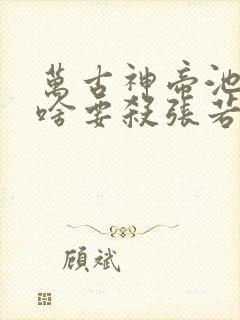 萬古神帝池
啥要殺張若
顧斌